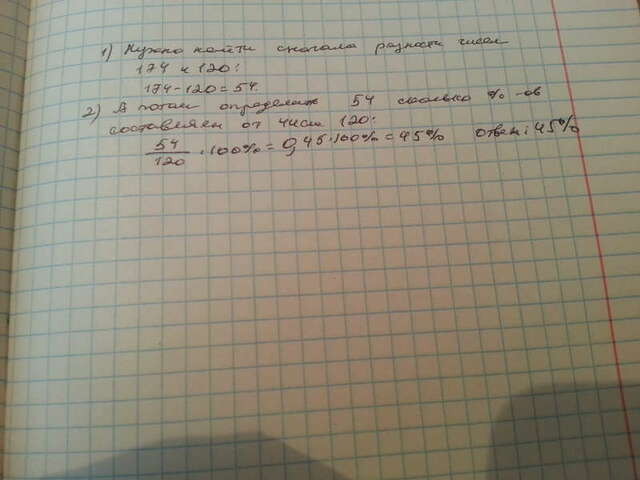 1) Нужно найти сначала разность чисел
174 и 120:
174-120=54.
2) А потом определить 54 сколько %-ов
составляет от числа 120:
54/120 · 100% = 0,45·100% = 45% ответ: 45%